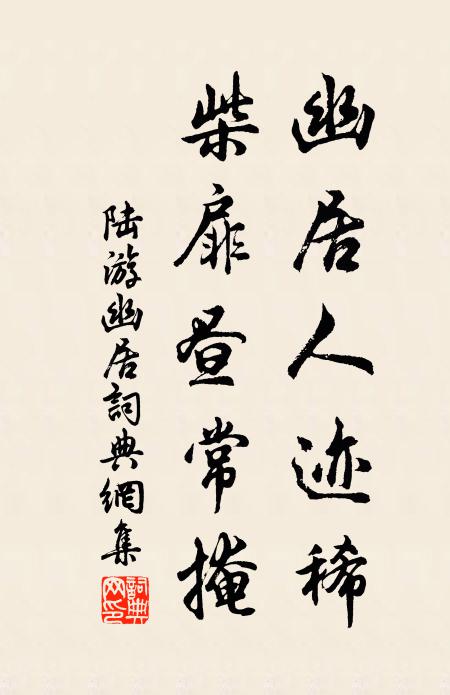 幽居人迹稀
柴扉昼常掩
陆游幽居詞典網集
詞典网印